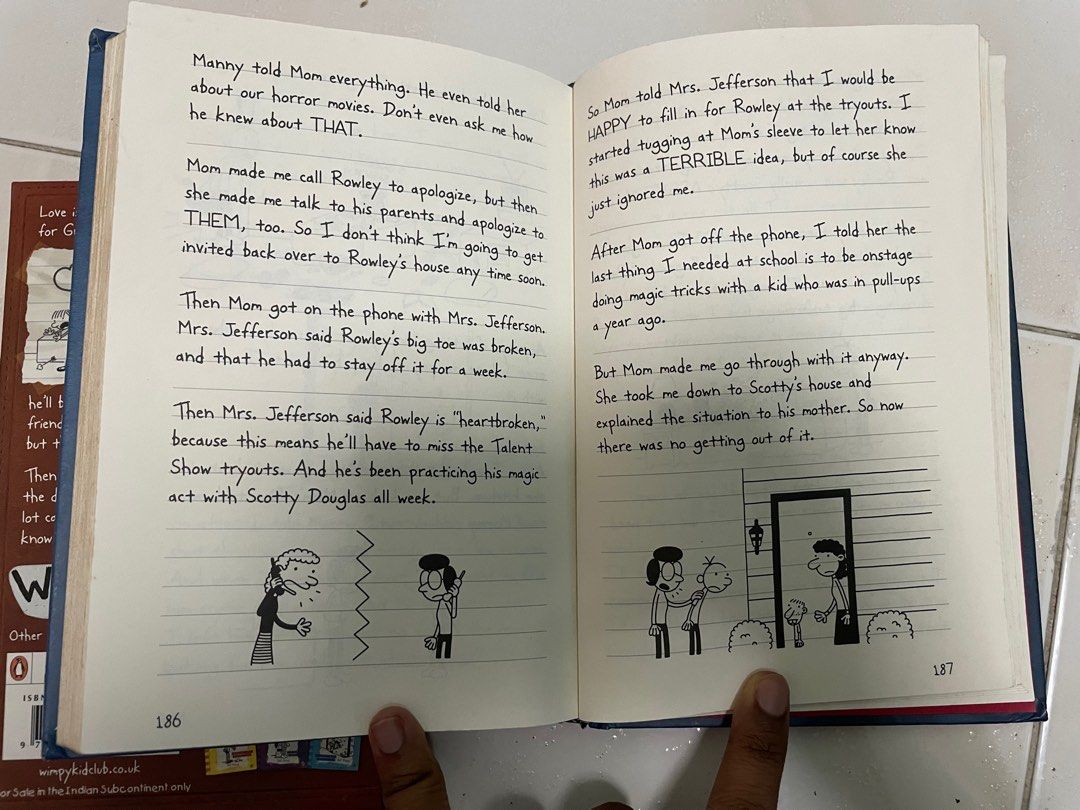 Manny told Mom everything. He even told her
about our horror movies. Don't even ask me how
he knew about THAT.
Mom made me call Rowley to apologize, but then
she made me talk to his parents and apologize to
THEM, too. So I don't think I'm going to get
invited back over to Rowley's house any time soon.
Then Mom got on the phone with Mrs. Jefferson.
Mrs. Jefferson said Rowley's big toe was broken,
and that he had to stay off it for a week.
Then Mrs. Jefferson said Rowley is "heartbroken,"
because this means he'll have to miss the Talent
Show tryouts. And he's been practicing his magic
act with Scotty Douglas all week.
186
So Mom told Mrs. Jefferson that I would be
HAPPY to fill in for Rowley at the tryouts. I
started tugging at Mom's sleeve to let her know
this was a TERRIBLE idea, but of course she
just ignored me.
After Mom got off the phone, I told her the
last thing I needed at school is to be onstage
doing magic tricks with a kid who was in pull-ups
a year ago.
But Mom made me go through with it anyway.
She took me down to Scotty's house and
explained the situation to his mother. So now
there was no getting out of it.
187
Love i
for G
he'll b
friend
but t
Then
the d
lot co
know
W
Other
ISBN
9 7
wimpykidclub.co.uk
or Sale in the Indian Subcontinent only